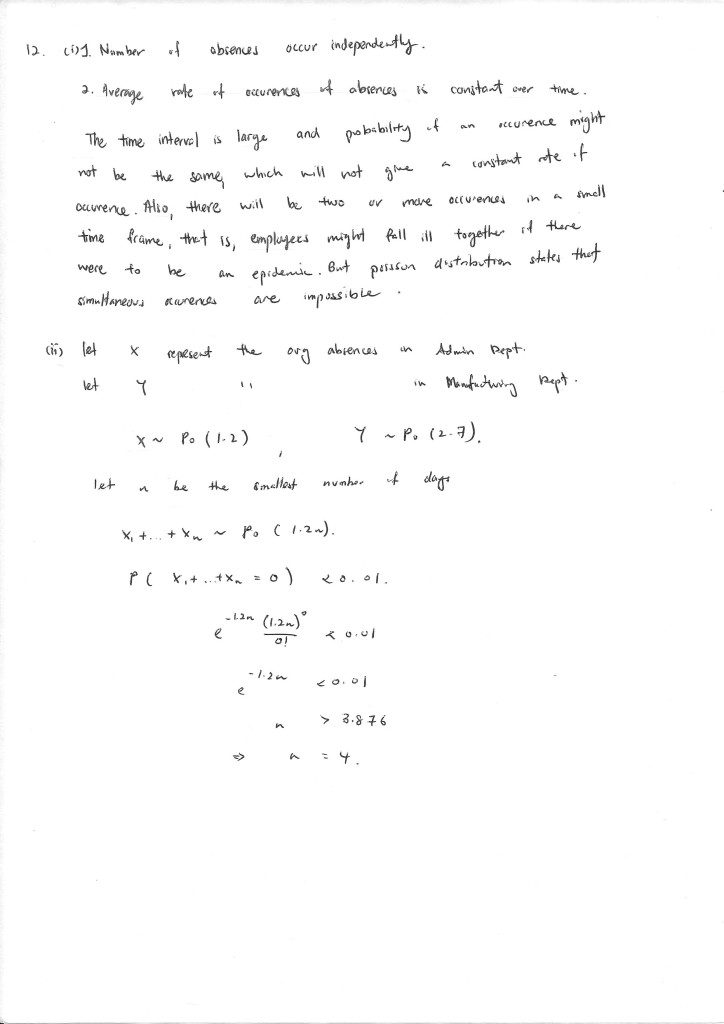 12. (i) 1. Number of absences occur independently.
2. Average rate of occurences of absences is constant over time.
The time interval is large and probability of an occurence might
not be the same, which will not give a constant rate of
occurence. Also, there will be two or more occurences in a small
time frame, that is, employees might fall ill together if there
were to be an epidemic. But poisson distribution states that
simultaneous occurences are impossible.
(ii) let X represent the avg absences in Admin Dept.
let Y '' in Manufacturing Dept.
X ~ Po (1.2) , Y ~ Po (2.7).
let n be the smallest number of days
X₁ + ... + Xₙ ~ Po ( 1.2n).
P ( X₁ + ... + Xₙ = 0 ) < 0.01.
e^{-1.2n} (1.2n)⁰ / 0! < 0.01
e^{-1.2n} < 0.01
n > 3.876
⇒ n = 4.